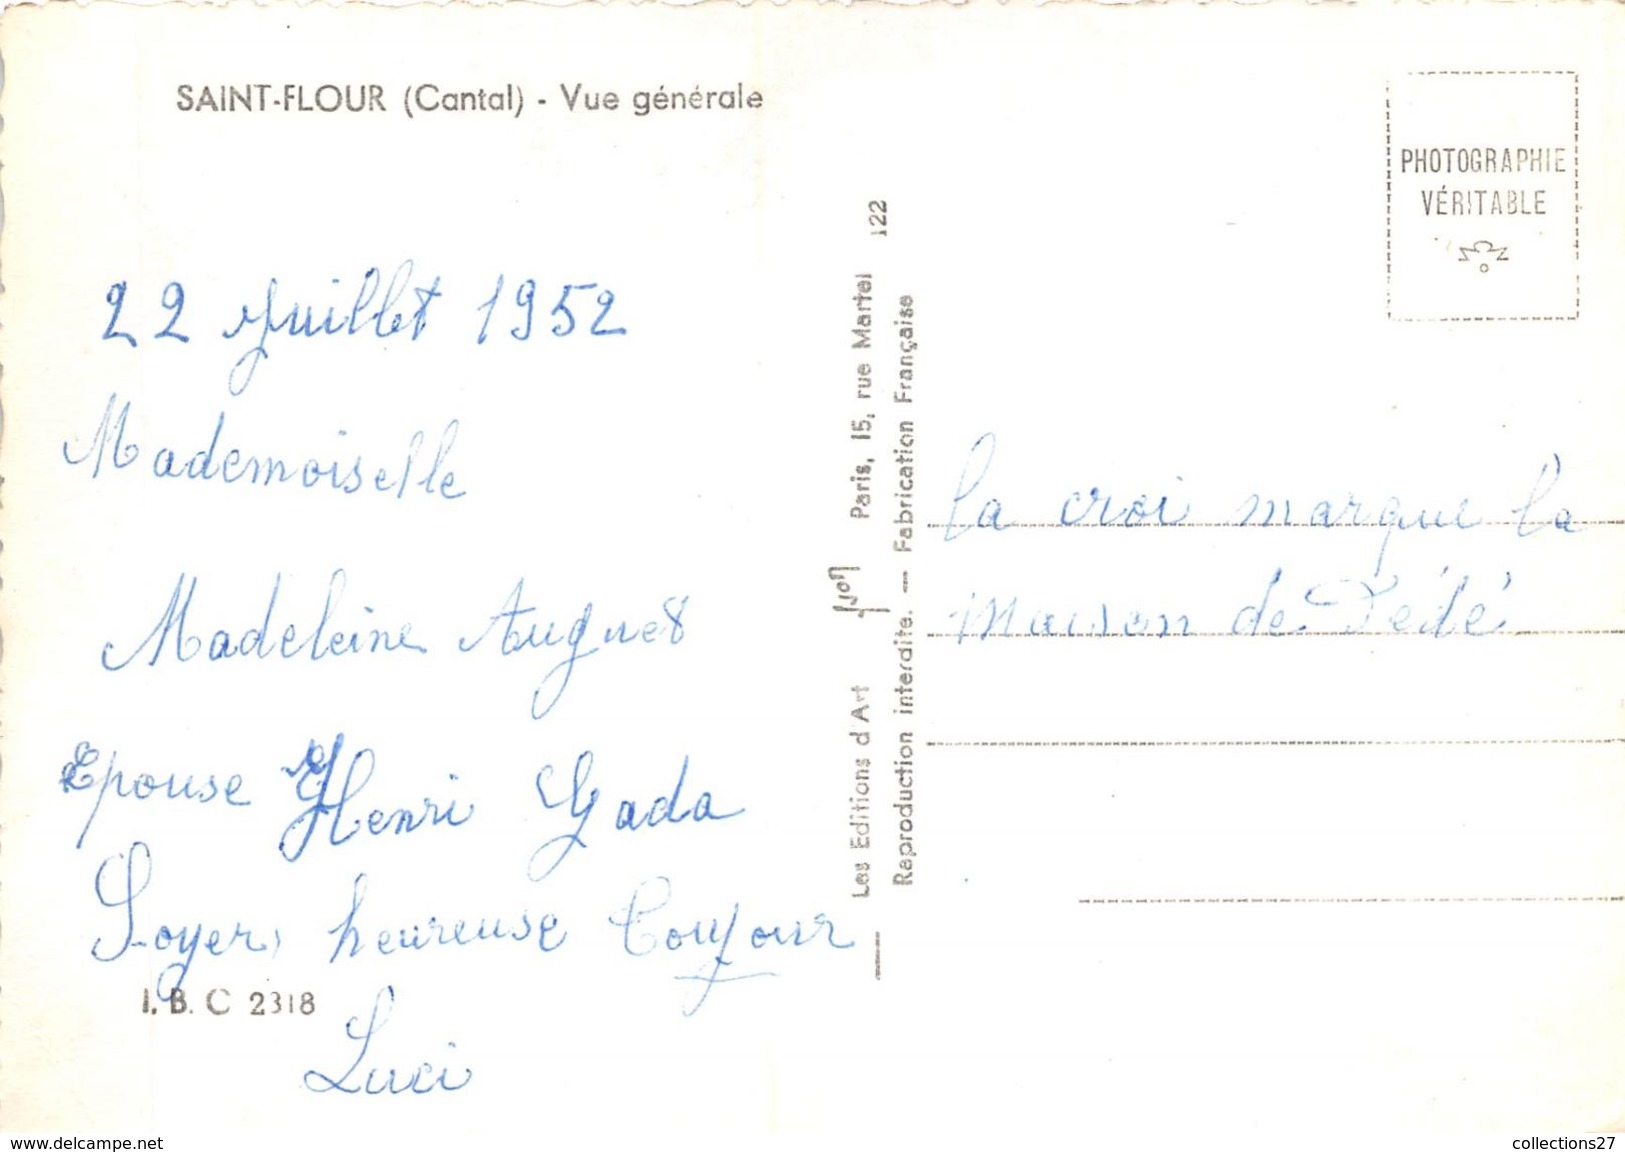 SAINT-FLOUR (Cantal) - Vue générale
22 Juillet 1952
Mademoiselle
Madeleine Auguet
Epouse Henri Gada
Soyer heureuse Toujour
I. B. C 2318
Luci
Les Editions d'Art Yvon Paris, 15, rue Martel 122
Reproduction interdite. — Fabrication Française
PHOTOGRAPHIE
VÉRITABLE
la croi marque la
maison de Dédé
www.delcampe.net
collections27